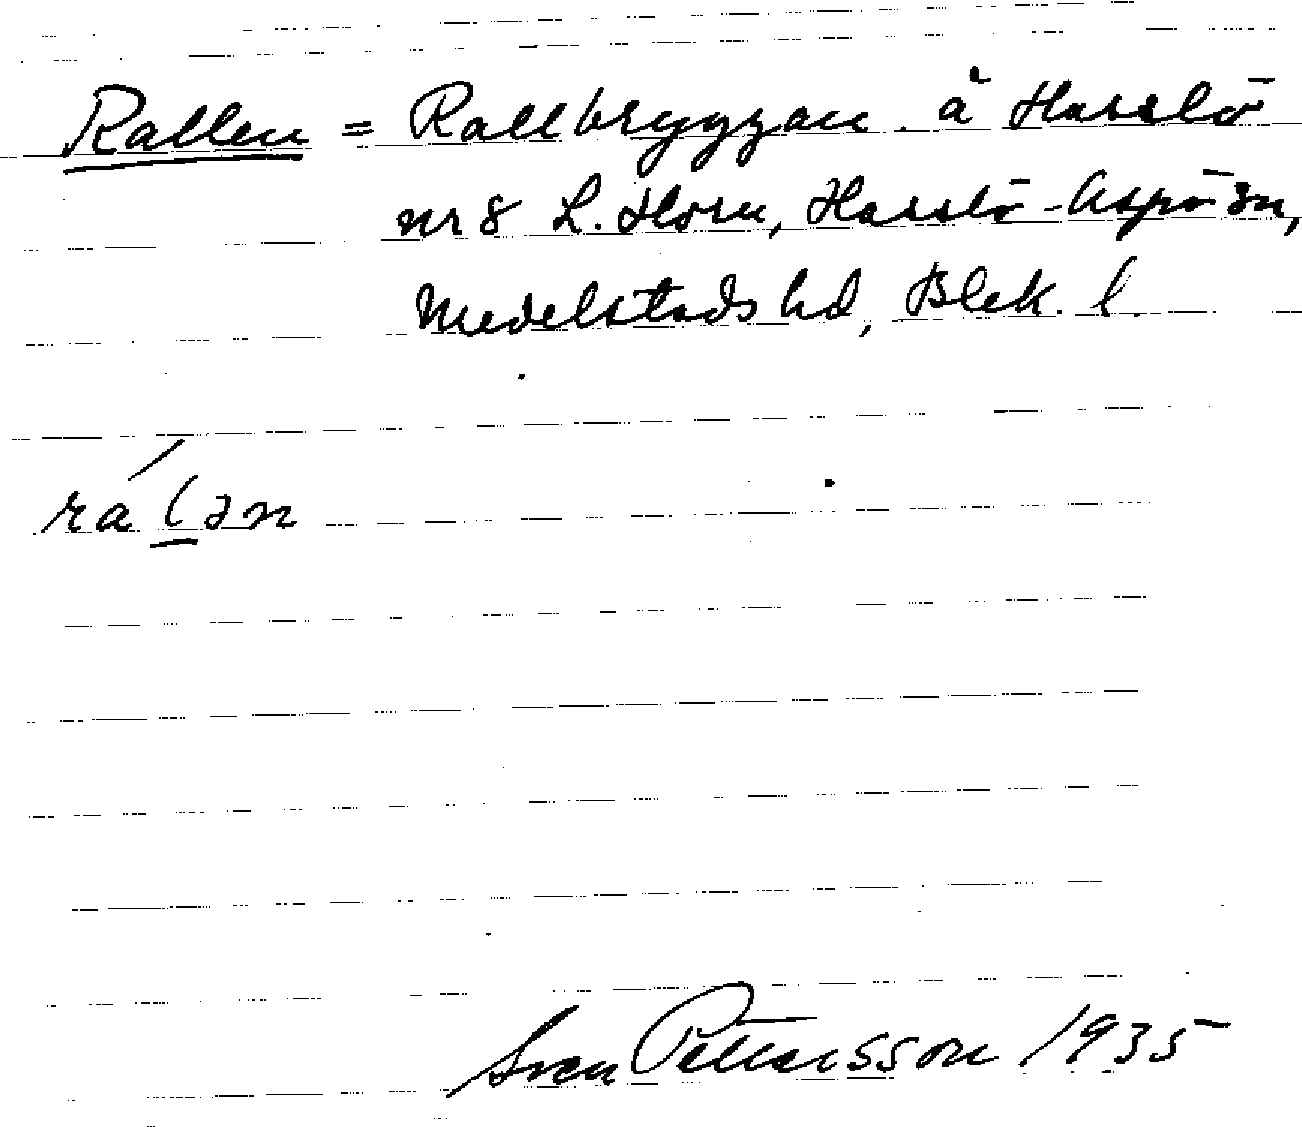 Rallen = Rallbryggan å Hasslö
nr 8 L. Horn, Hasslö-Aspö sn,
Medelstads hd, Blek. l.
rálən
Sven Pettersson 1935